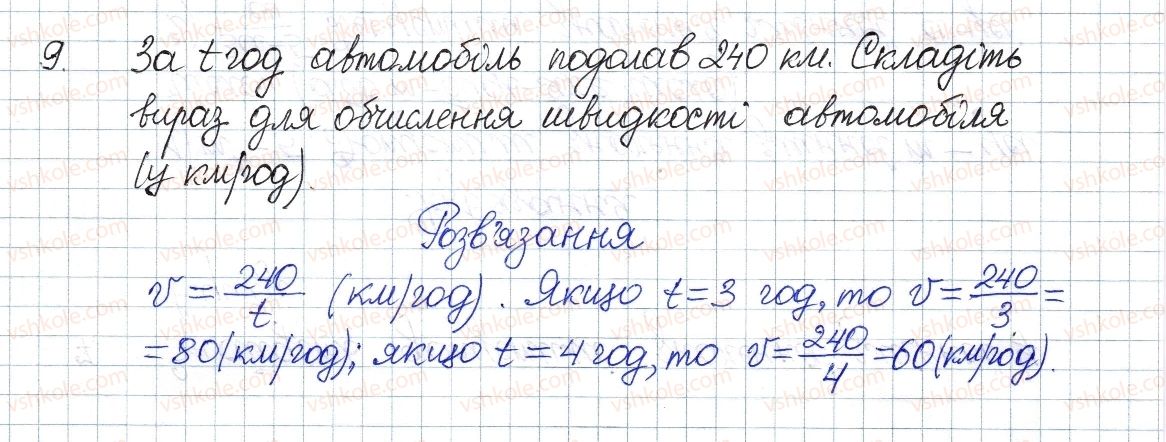 9. За t год автомобіль подолав 240 км. Складіть
вираз для обчислення швидкості автомобіля
(у км/год).
Розв'язання
v = 240/t (км/год). Якщо t = 3 год, то v = 240/3 =
= 80 (км/год); якщо t = 4 год, то v = 240/4 = 60 (км/год).
vshkole.com